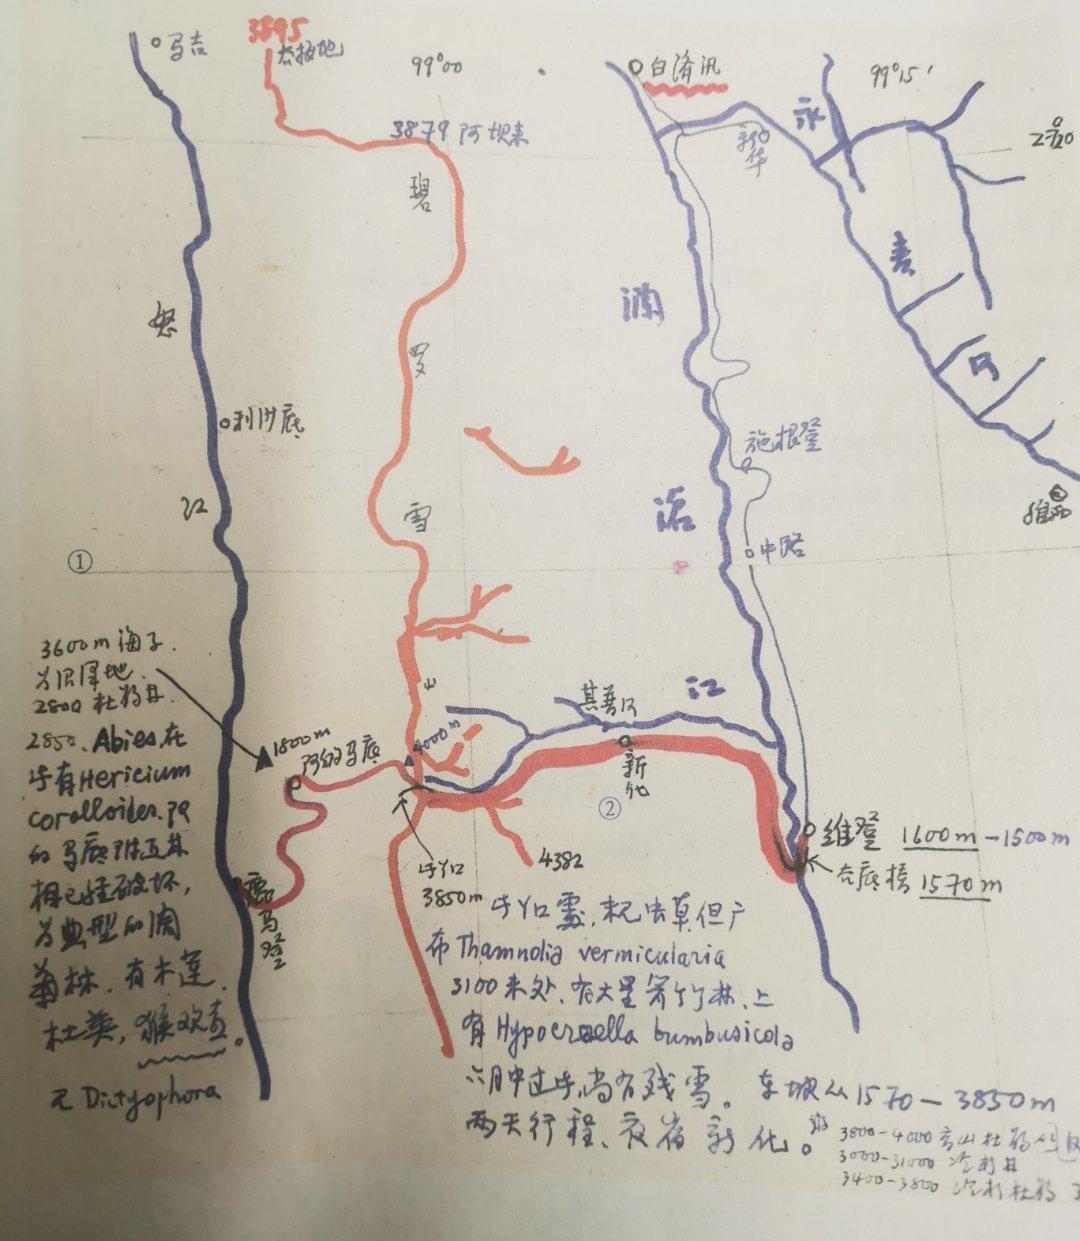 马吉
3895
99°00
白济汛
99°15′
永
新华
3879 阿坝来
碧
春
澜
怒
罗
利沙底
施根登
江
雪
沧
中路
维西
①
3600m 海子.
为沼泽地.
2800 杜鹃林.
2850. Abies, 在
有 Hericium
coralloides. 阿
的马底附近其
相已经破坏,
为典型的
林. 有木莲.
杜英, 猴欢喜.
无 Dictyophora
1800m
阿的马底
4000m
江
新化
②
维登 1600m-1500m
1570m
鹿马登
垭口
3850m
4382
布 Thamnolia vermicularia
3100米处, 有大量箭竹林, 上
有 Hypocrella bambusicola
六月中过垭, 尚有残雪。 东坡从1570-3850m
两天行程、夜宿新化。
3800-4000 高山杜鹃
3000-31000 冷杉林
3400-3800 冷杉杜鹃